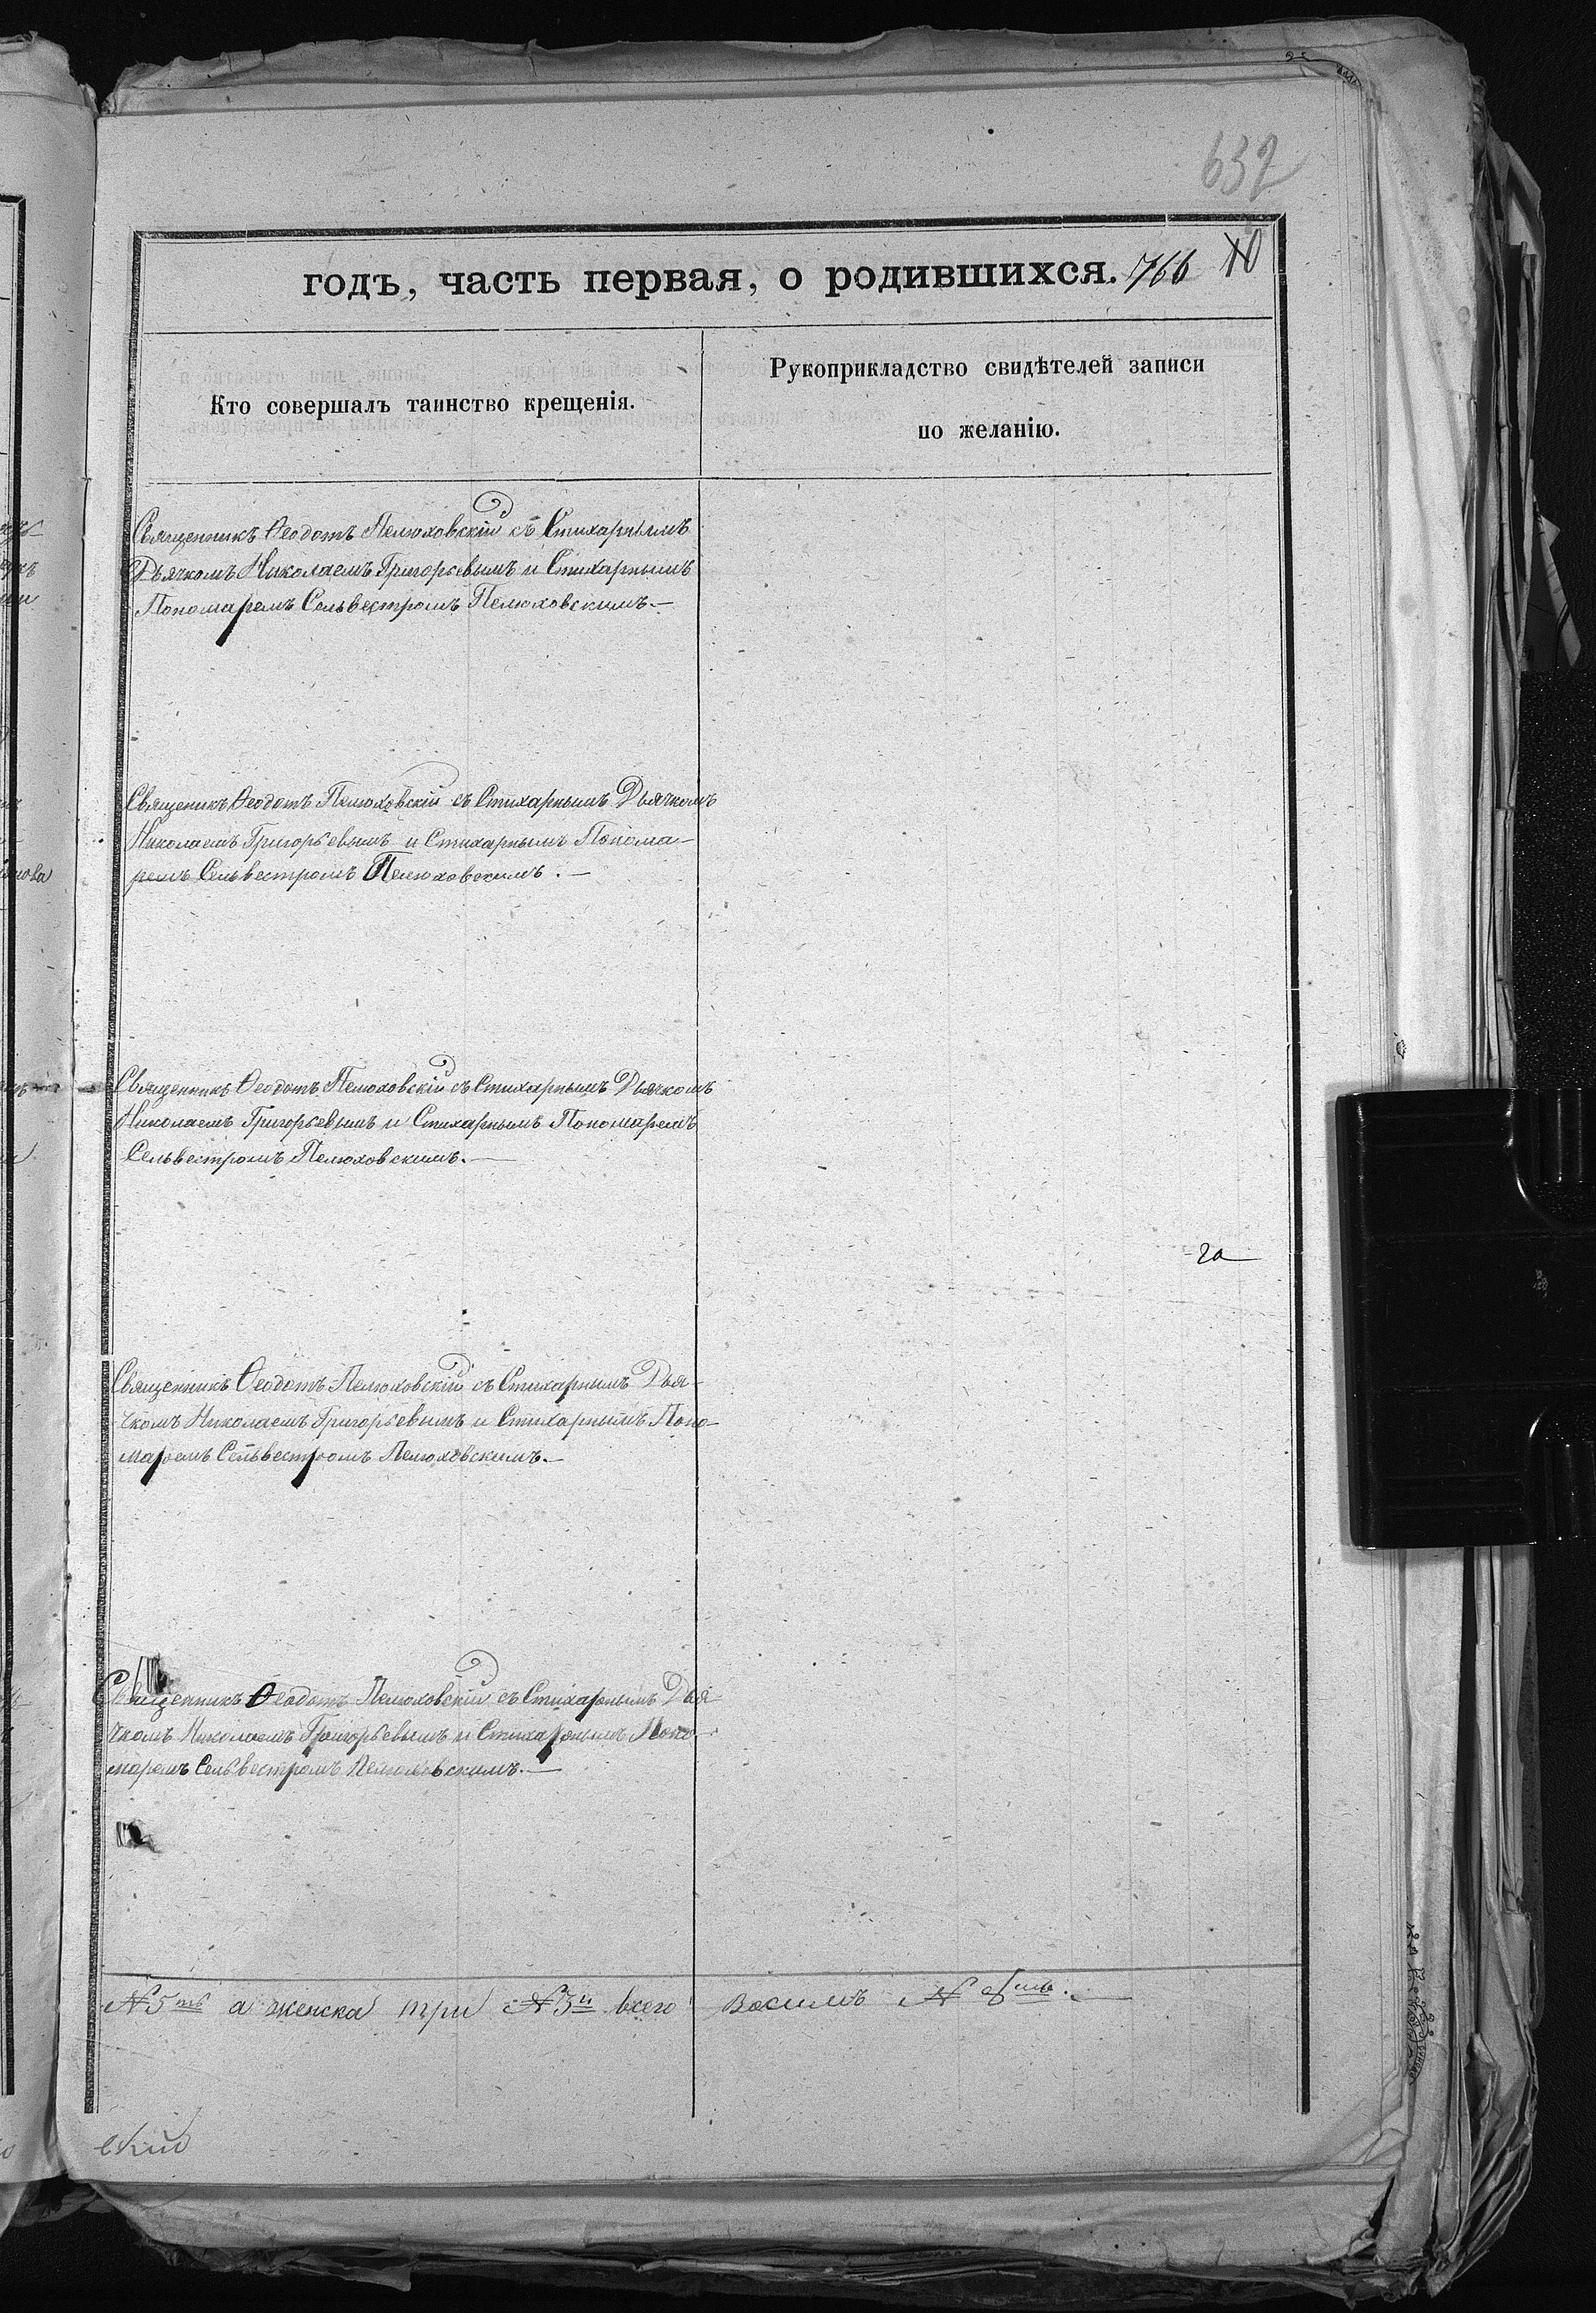 632
годъ, часть первая, о родившихся. 766 10
Кто совершалъ таинство крещенія.
Рукоприкладство свидѣтелей записи
по желанію.
Священникъ Ѳеодотъ Пелюховскій съ Стихарнымъ
Дьячкомъ Николаемъ Григорьевымъ и Стихарнымъ
Пономаремъ Сельвестромъ Пелюховскимъ.—
Священикъ Ѳеодотъ Пелюховскій съ Стихарнымъ Дьячкомъ
Николаемъ Григорьевымъ и Стихарнымъ Понома-
ремъ Сельвестромъ Пелюховскимъ.—
Священникъ Ѳеодотъ Пелюховскій съ Стихарнымъ Дьячкомъ
Николаемъ Григорьевымъ и Стихарнымъ Пономаремъ
Сельвестромъ Пелюховскимъ.—
Священникъ Ѳеодотъ Пелюховскій съ Стихарнымъ Дья-
чкомъ Николаемъ Григорьевымъ и Стихарнымъ Поно-
маремъ Сельвестромъ Пелюховскимъ.—
Священникъ Ѳеодотъ Пелюховскій съ Стихарнымъ Дья-
чкомъ Николаемъ Григорьевымъ и Стихарнымъ Поно-
маремъ Сельвестромъ Пелюховскимъ.—
№ 5ть а женска три № 3и всего восимъ № 8мь.—
вскій